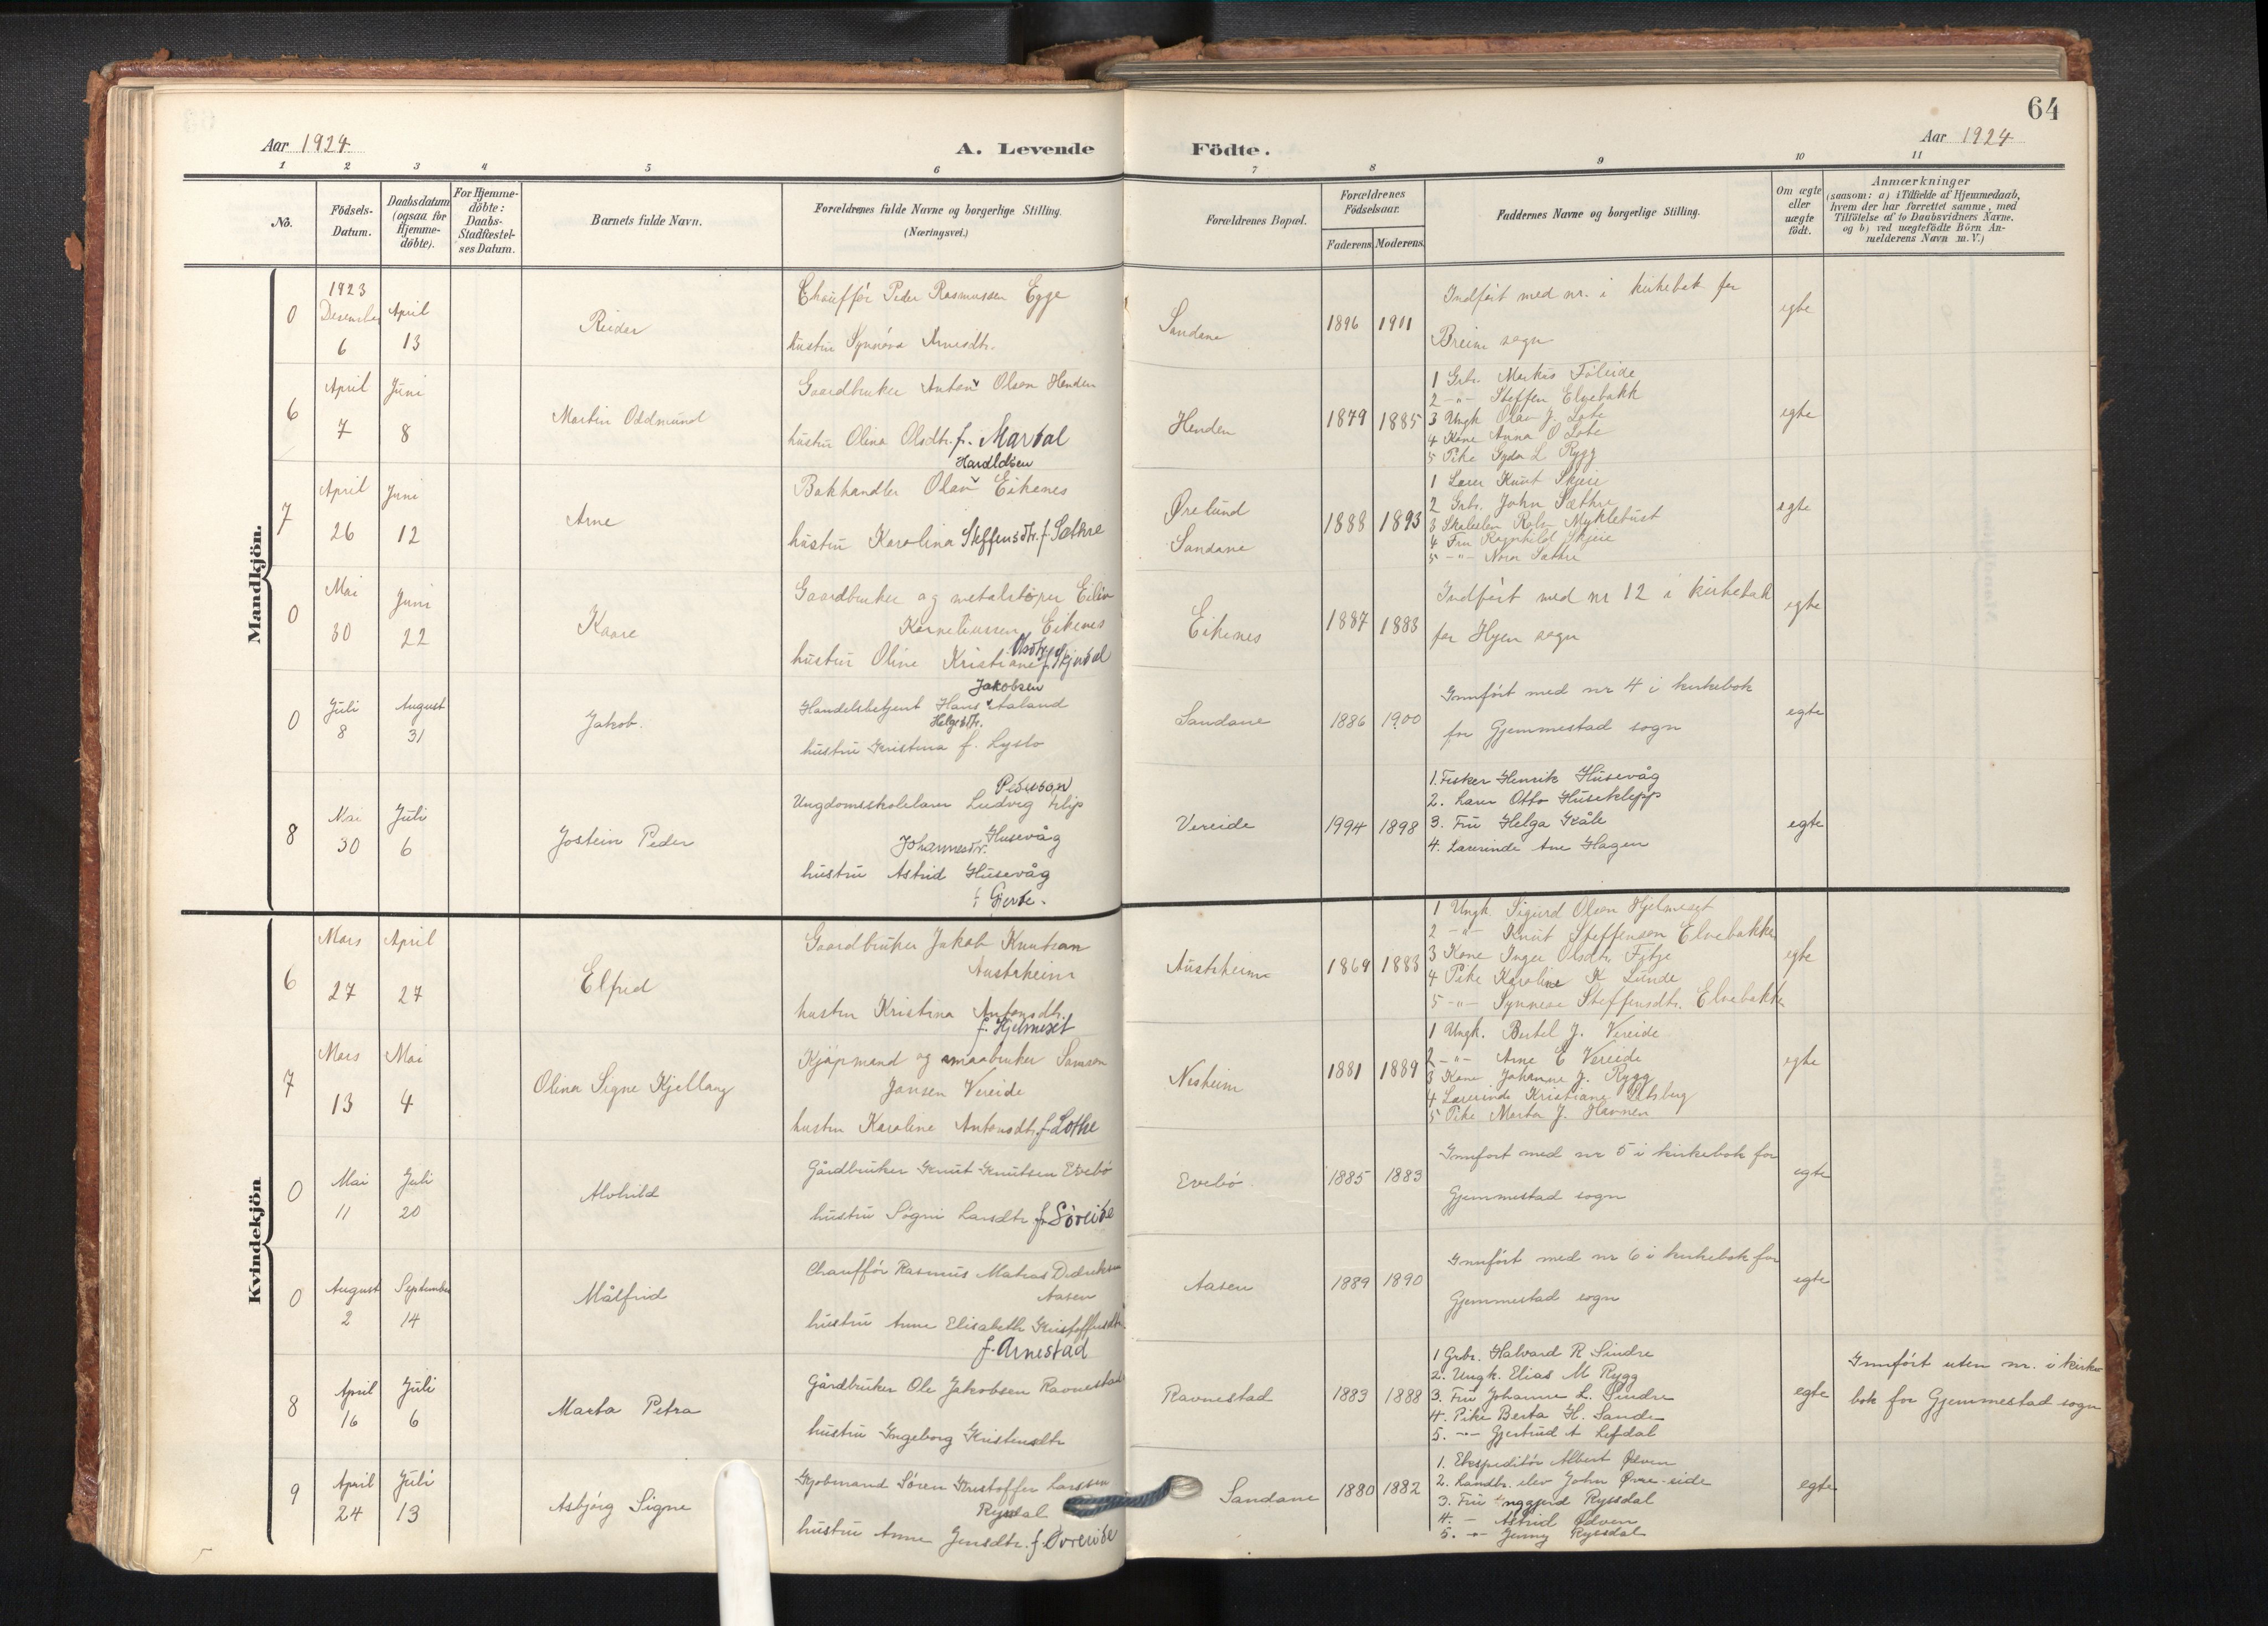 64
Aar 1924
A. Levende Födte.
Aar 1924
1 2 3 4 5 6 7 8 9 10 11
No.
Födsels-
Datum.
Daabsdatum
(ogsaa for
Hjemme-
döbte).
For Hjemme-
döbte:
Daabs-
Stadfæstel-
ses Datum.
Barnets fulde Navn.
Forældrenes fulde Navne og borgerlige Stilling.
(Næringsvei.)
Forældrenes Bopæl.
Forældrenes
Födselsaar.
Faderens. Moderens.
Faddernes Navne og borgerlige Stilling.
Om ægte
eller
uægte
födt.
Anmærkninger
(saasom: a) i Tilfælde af Hjemmedaab,
hvem der har forrettet samme, med
Tilföielse af to Daabsvidners Navne,
og b) ved uægtefödte Börn An-
melderens Navn m. V.)
Mandkjön.
0
1923
Desember
6
April
13
Reidar
Chauffór Peder Rasmussen Egge
hustru Synnóva Arnesdtr.
Sandane
1896 1901
Indfórt med nr. i kirkebok for
Breim sogn
egte
6
April
7
Juni
8
Martin Oddmund
Gaardbruker Anton Olsen Henden
hustru Olina Olsdtr. f. Mardal
Henden
1879 1885
1 Grbr. Markus Fóleide
2 -"- Steffen Elvebakk
3 Ungk Olav J. Lote
4 Kone Anna O Lote
5 Pike Gyda L Rygg
egte
7
April
26
Juni
12
Arne
Haraldsen
Bokhandler Olav Eikenes
hustru Karolina Steffensdtr. f. Sæthre
Ørelund
Sandane
1888 1893
1 Lærer Knut Skjeie
2 Grbr. John Sæthre
3 Skoleelev Rolv Myklebust
4 Fru Ragnhild Skjeie
5 -"- Nora Sæthre
egte
0
Mai
30
Juni
22
Kaare
Gaardbruker og metalstóper Eiliv
Korneliussen Eikenes
Olsdtr.
hustru Oline Kristiane f. Skjerdal
Eikenes
1887 1883
Indfórt med nr 12 i kirkebok
for Hyen sogn
egte
0
Juli
8
August
31
Jakob.
Jakobsen
Handelsbetjent Hans Aaland
Helgesdtr.
hustru Kristina f. Lyslo
Sandane
1886 1900
Innfórt med nr 4 i kirkebok
for Gjemmestad sogn
egte
8
Mai
30
Juli
6
Jostein Peder
Pederson
Ungdomsskolelærer Ludvig Filip
Husevåg
Johannesdtr.
hustru Astrid Husevåg
f. Gjerde.
Vereide
1994 1898
1. Fisker Henrik Husevåg
2. Lærer Otto Huseklepp
3. Fru Helga Kåle
4. Lærerinde Ane Hagen
egte
Kvindekjön
6
Mars
27
April
27
Elfrid
Gaardbruker Jakob Knutsen
Austrheim
hustru Kristina Antonsdtr.
f. Hjelmeset
Austrheim
1869 1883
1 Ungk. Sigurd Olsen Hjelmeset
2 -"- Knut Steffensen Elvebakke
3 Kone Inger Olsdtr. Fitje
4 Pike Karoline K Lunde
5 -"- Synneva Steffensdtr. Elvebakke
egte
7
Mars
13
Mai
4
Olina Signe Kjellaug
Kjópmand og smaabruker Samson
Jansen Vereide
hustru Karoline Antonsdtr. f. Lothe
Nesheim
1881 1889
1 Ungk. Bertel J. Vereide
2 -"- Arne E Vereide
3 Kone Johanne J. Rygg
4 Lærerinde Kristiane
5 Pike Marta J. Havnen
egte
0
Mai
11
Juli
20
Alvhild
Gårdbruker Knut Knutsen Evebó
hustru Sógni Larsdtr. f. Sóreide
Evebó
1885 1883
Innfórt med nr 5 i kirkebok for
Gjemmestad sogn
egte
0
August
2
September
14
Målfrid
Chauffór Rasmus Matias Didriksen
Aasen
hustru Anne Elisabeth Kristoffersdtr.
f. Arnestad
Aasen
1889 1890
Innfórt med nr 6 i kirkebok for
Gjemmestad sogn
egte
8
April
16
Juli
6
Marta Petra
Gårdbruker Ole Jakobsen Ravnestad
hustru Ingeborg Kristensdtr
Ravnestad
1883 1888
1 Grbr. Halvard R Sindre
2. Ungk. Elias M Rygg
3. Fru Johanne L. Sindre
4. Pike Berta H. Sande
5. -"- Gjertrud A Lefdal
egte
Innfórt uten nr. i kirke-
bok for Gjemmestad sogn
9
April
24
Juli
13
Asbjórg Signe
Kjóbmand Sóren Kristoffer Larssen
Ryssdal
hustru Anne Jensdtr. f. Óvreeide
Sandane
1880 1882
1. Ekspeditór Albert Ødven
2. Landbr. elev John Øvre-eide
3. Fru Inggjerd Ryssdal
4. - Astrid Ødven
5. -"- Jenny Ryssdal
egte